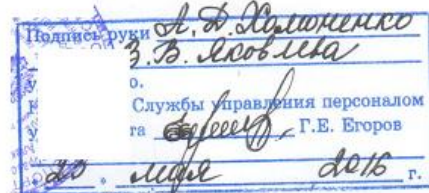 Подпись руки А. Д. Хомоненко
З. В. Яковлева
о.
Службы управления персоналом
та Г.Е. Егоров
20 мая 2016 г.